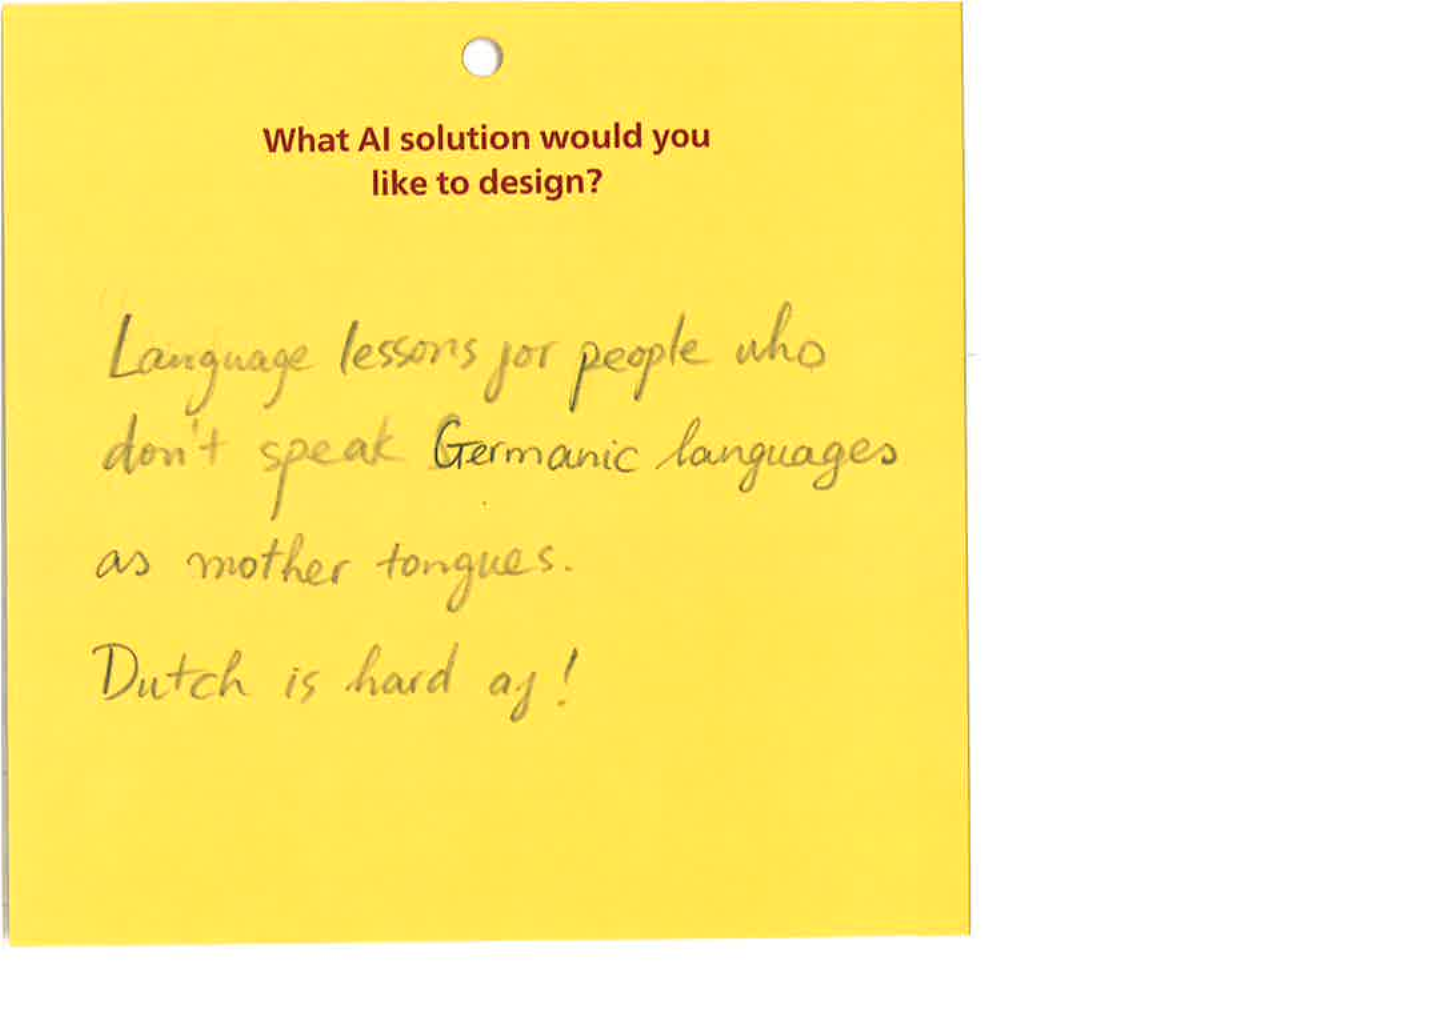 What AI solution would you
like to design?
Language lessons for people who
don't speak Germanic languages
as mother tongues.
Dutch is hard af!